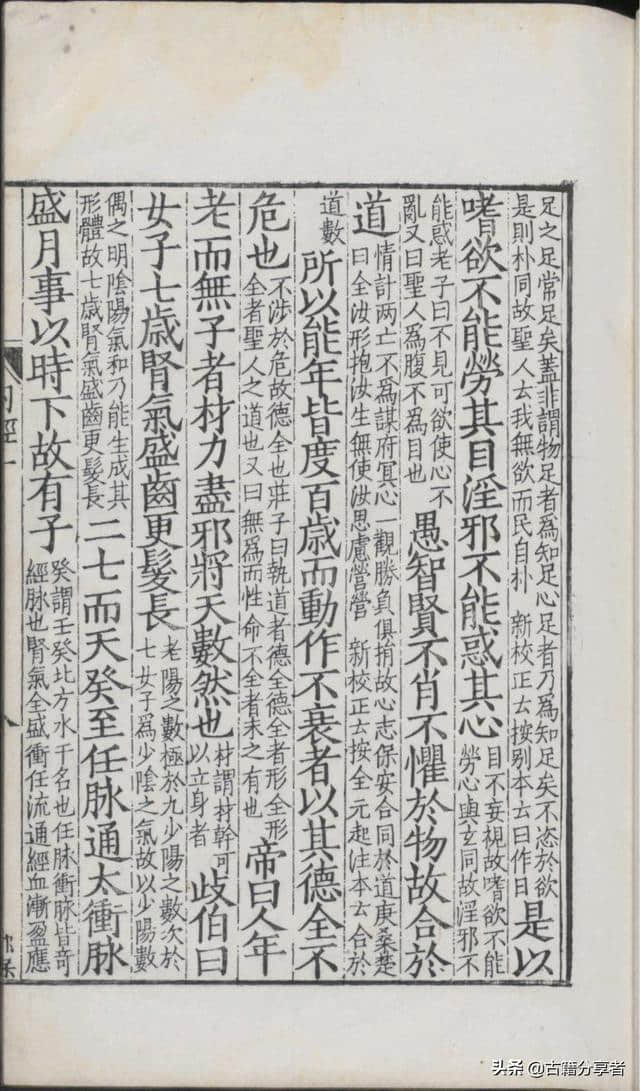 足之足常足矣蓋非謂物足者爲知足心足者乃爲知足矣不恣於欲是則朴同故聖人云我無欲而民自朴 新校正云按别本云曰作日 是以
嗜欲不能勞其目淫邪不能惑其心 目不妄視故嗜欲不能勞心與玄同故淫邪不
能惑老子曰不見可欲使心不亂又曰聖人爲腹不爲目也 愚智賢不肖不懼於物故合於
道 情計兩亡不爲謀府冥心一觀勝負俱捐故心志保安合同於道庚桑楚曰全汝形抱汝生無使汝思慮營營 新校正云按全元起注本云合於
道數 所以能年皆度百歳而動作不衰者以其德全不
危也 不涉於危故德全也莊子曰執道者德全德全者形全形全者聖人之道也又曰無爲而性命不全者未之有也 帝曰人年
老而無子者材力盡邪將天數然也 材謂材幹可以立身者 歧伯曰
女子七歳腎氣盛齒更髮長 老陽之數極於九少陽之數次於七女子爲少陰之氣故以少陽數
偶之明陰陽氣和乃能生成其形體故七歳腎氣盛齒更髮長 二七而天癸至任脉通太衝脉
盛月事以時下故有子 癸謂壬癸北方水干名也任脉衝脉皆奇經脉也腎氣全盛衝任流通經血漸盈應
内經一
八
头条 @古籍分享者